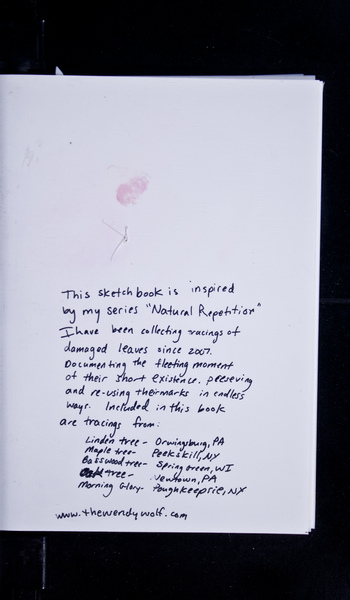 This sketchbook is inspired
by my series "Natural Repetition"
I have been collecting tracings of
damaged leaves since 2007.
Documenting the fleeting moment
of their short existence. preserving
and re-using their marks in endless
ways. Included in this book
are tracings from:
Linden tree - Orwinsburg, PA
Maple tree - Peekskill, NY
Basswood tree - Spring Green, WI
Oak tree - Newtown, PA
Morning Glory - Poughkeepsie, NY
www.thewendywolf.com